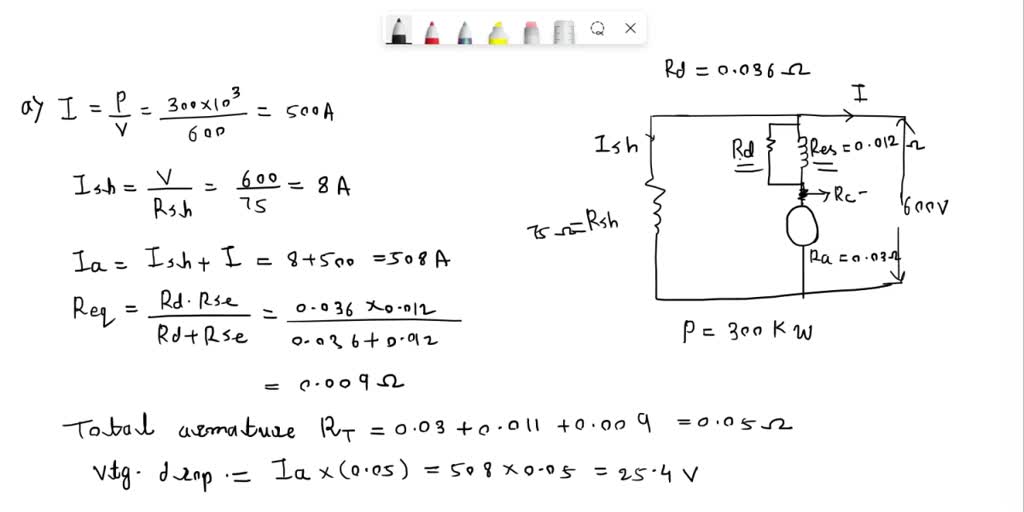 Rd = 0.036 Ω
a) I = P/V = 300×10³/600 = 500A
Ish = V/Rsh = 600/75 = 8 A
Ia = Ish + I = 8+500 = 508 A
Req = Rd·Rse/Rd+Rse = 0.036 × 0.012/0.036+0.012
= 0.009 Ω
Total armature RT = 0.03 + 0.011 + 0.009 = 0.05 Ω
Vtg. drop = Ia × (0.05) = 508 × 0.05 = 25.4 V
I
Ish
Rd
Res = 0.012 Ω
Rc
600V
75 Ω = Rsh
Ra = 0.03 Ω
P = 300 K W